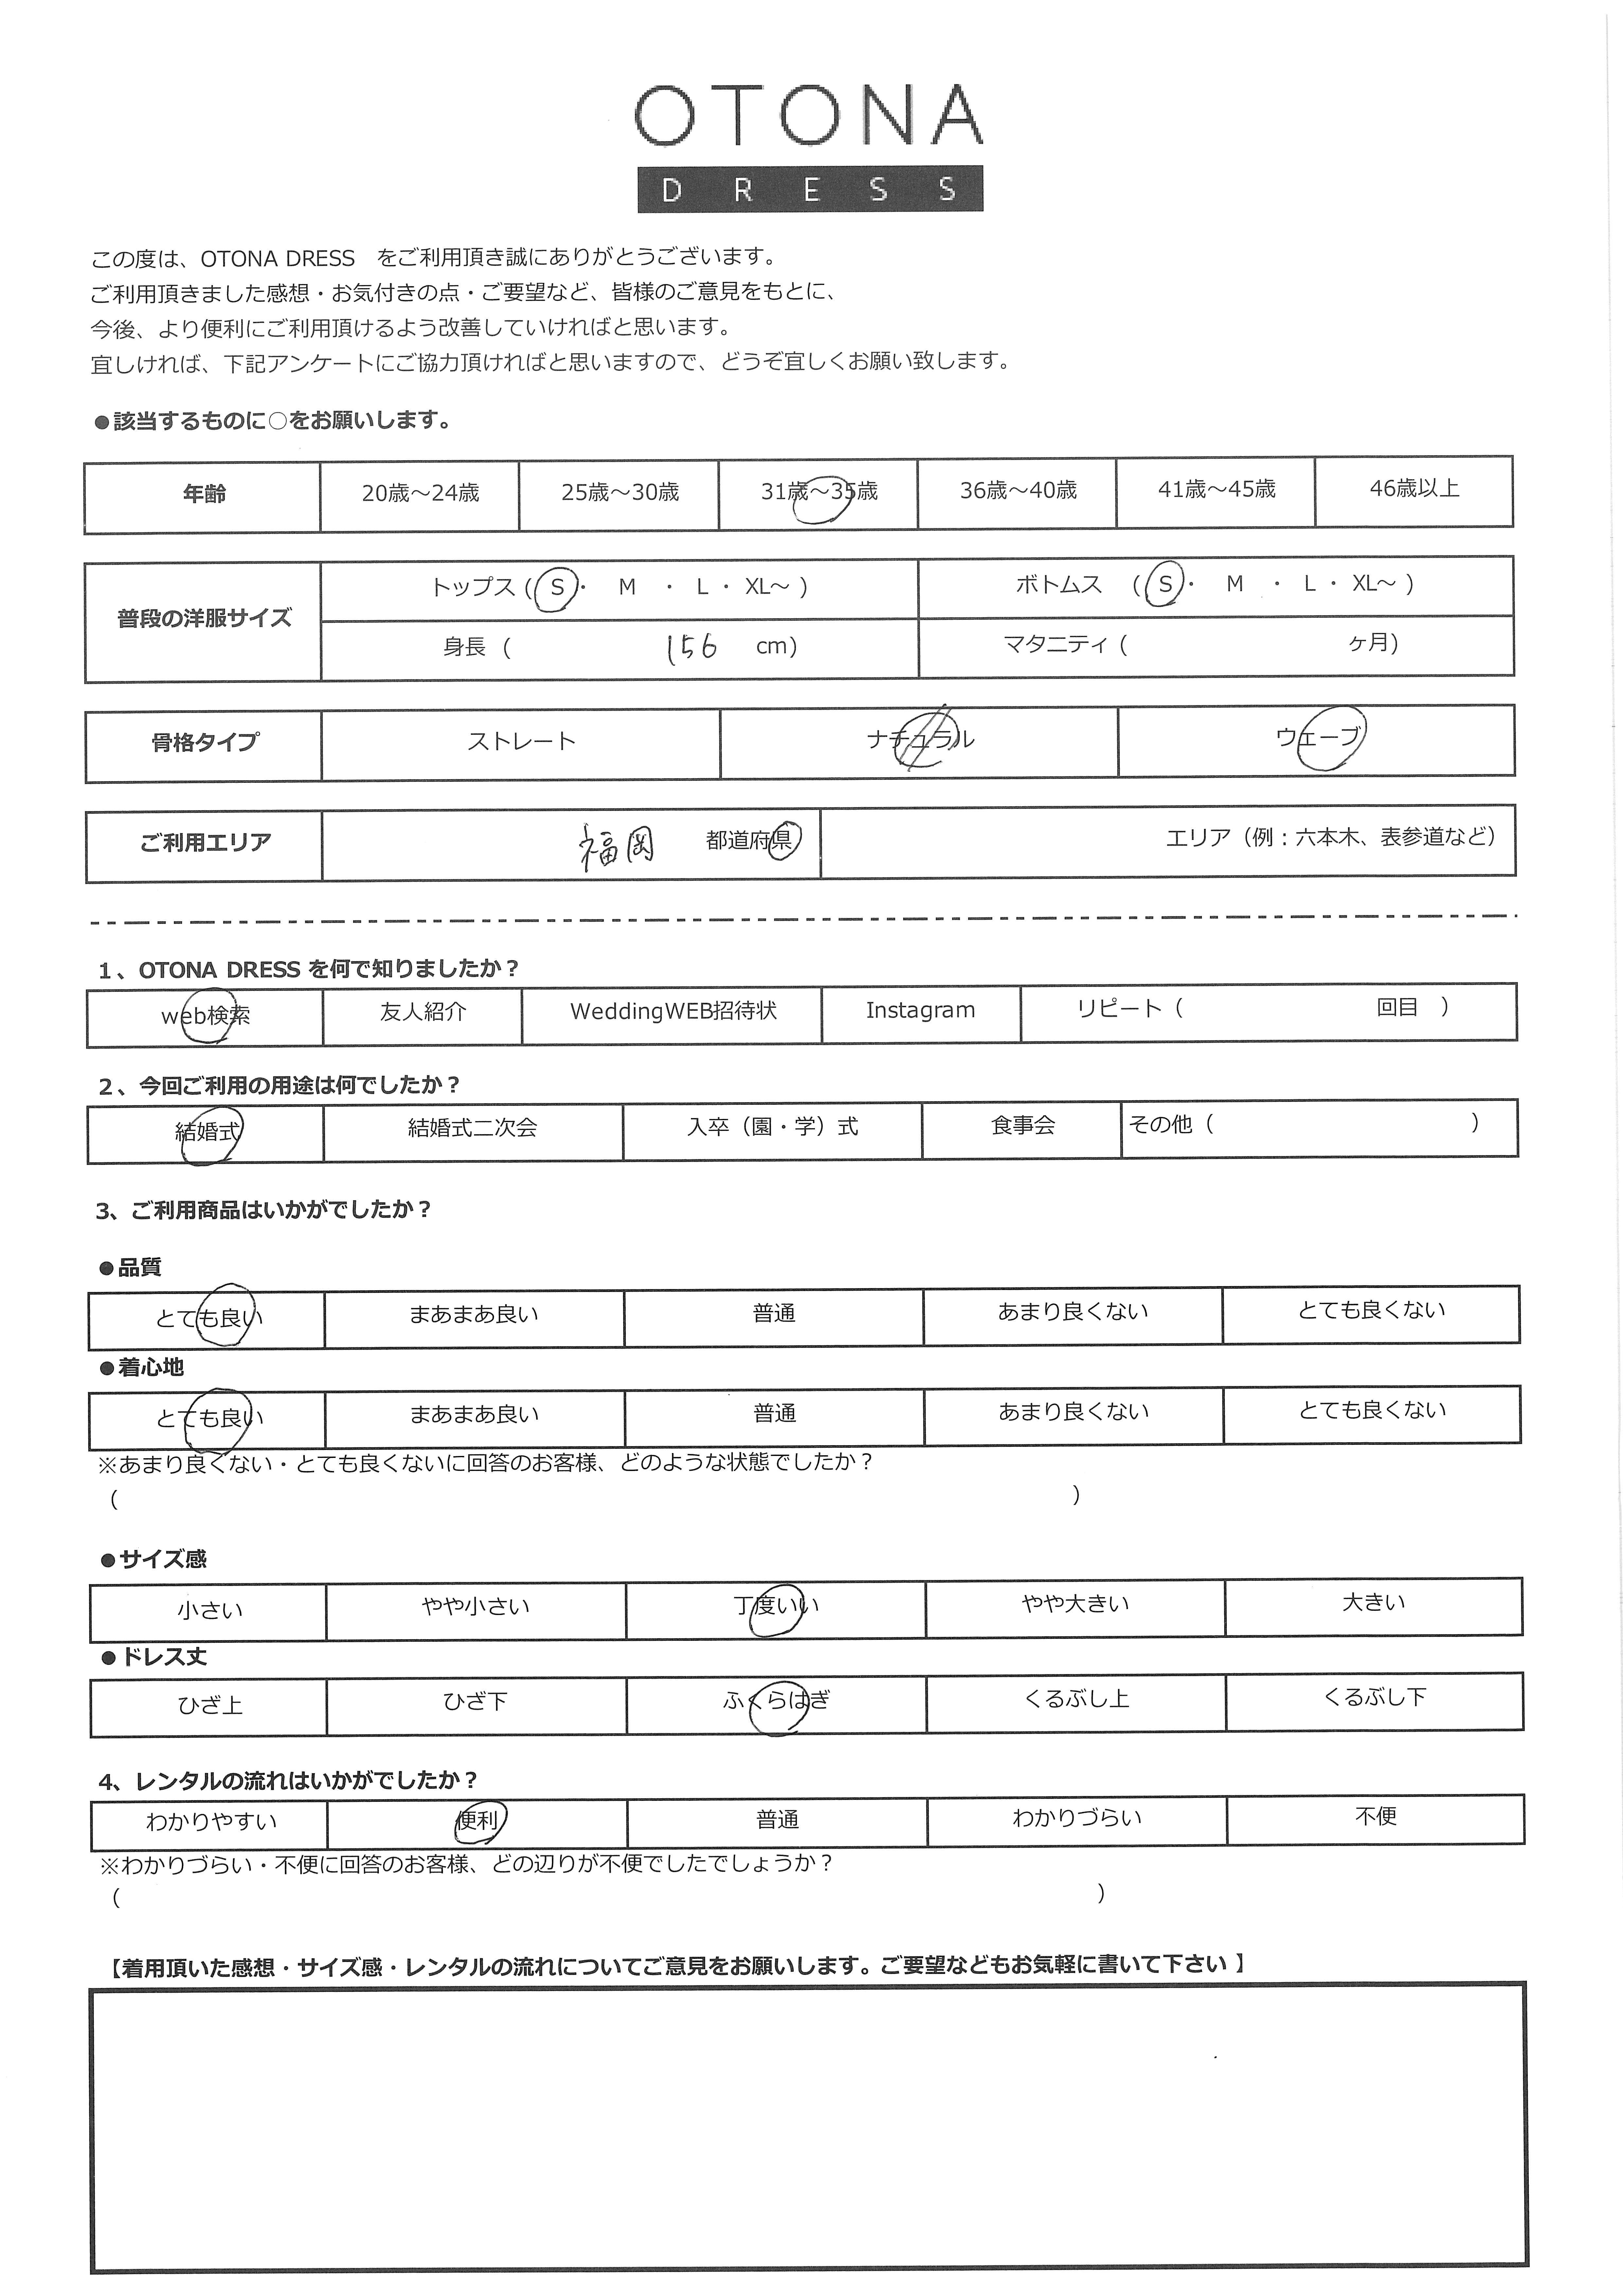 OTONA
DRESS
この度は、OTONA DRESS　をご利用頂き誠にありがとうございます。
ご利用頂きました感想・お気付きの点・ご要望など、皆様のご意見をもとに、
今後、より便利にご利用頂けるよう改善していければと思います。
宜しければ、下記アンケートにご協力頂ければと思いますので、どうぞ宜しくお願い致します。
●該当するものに○をお願いします。
年齢 20歳～24歳 25歳～30歳 31歳～35歳 36歳～40歳 41歳～45歳 46歳以上
普段の洋服サイズ トップス ( S ・ M ・ L ・ XL～ ) ボトムス ( S ・ M ・ L ・ XL～ )
身長 ( 156 cm) マタニティ ( ヶ月)
骨格タイプ ストレート ナチュラル ウェーブ
ご利用エリア 福岡 都道府県 エリア（例：六本木、表参道など）
1、OTONA DRESS を何で知りましたか？
web検索 友人紹介 WeddingWEB招待状 Instagram リピート（ 回目 ）
2、今回ご利用の用途は何でしたか？
結婚式 結婚式二次会 入卒（園・学）式 食事会 その他（ ）
3、ご利用商品はいかがでしたか？
●品質
とても良い まあまあ良い 普通 あまり良くない とても良くない
●着心地
とても良い まあまあ良い 普通 あまり良くない とても良くない
※あまり良くない・とても良くないに回答のお客様、どのような状態でしたか？
（ ）
●サイズ感
小さい やや小さい 丁度いい やや大きい 大きい
●ドレス丈
ひざ上 ひざ下 ふくらはぎ くるぶし上 くるぶし下
4、レンタルの流れはいかがでしたか？
わかりやすい 便利 普通 わかりづらい 不便
※わかりづらい・不便に回答のお客様、どの辺りが不便でしたでしょうか？
（ ）
【着用頂いた感想・サイズ感・レンタルの流れについてご意見をお願いします。ご要望などもお気軽に書いて下さい 】